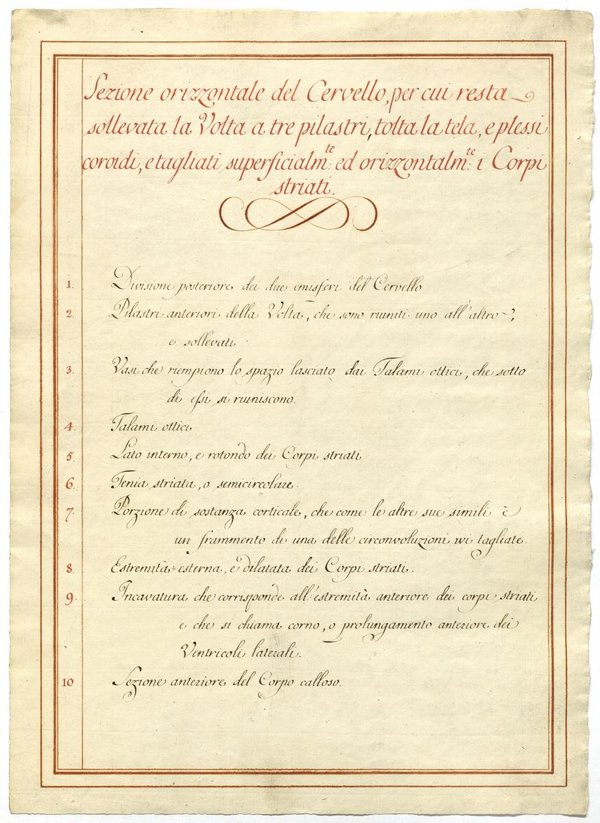 Sezione orizzontale del Cervello, per cui resta
sollevata la Volta a tre pilastri, tolta la tela, e plessi
coroidi, e tagliati superficialm.te ed orizzontalm.te i Corpi
striati.
1. Divisione posteriore dei due emisferi del Cervello
2. Pilastri anteriori della Volta, che sono riuniti uno all'altro,
e sollevati
3. Vasi che riempiono lo spazio lasciato dai Talami ottici, che sotto
di essi si riuniscono.
4. Talami ottici
5. Lato interno, e rotondo dei Corpi striati
6. Tenia striata, o semicircolare
7. Porzione di sostanza corticale, che come le altre sue simili è
un frammento di una delle circonvoluzioni ivi tagliate.
8. Estremità esterna, e dilatata dei Corpi striati.
9. Incavatura che corrisponde all'estremità anteriore dei corpi striati
e che si chiama corno, o prolungamento anteriore dei
Ventricoli laterali.
10 Sezione anteriore del Corpo calloso.